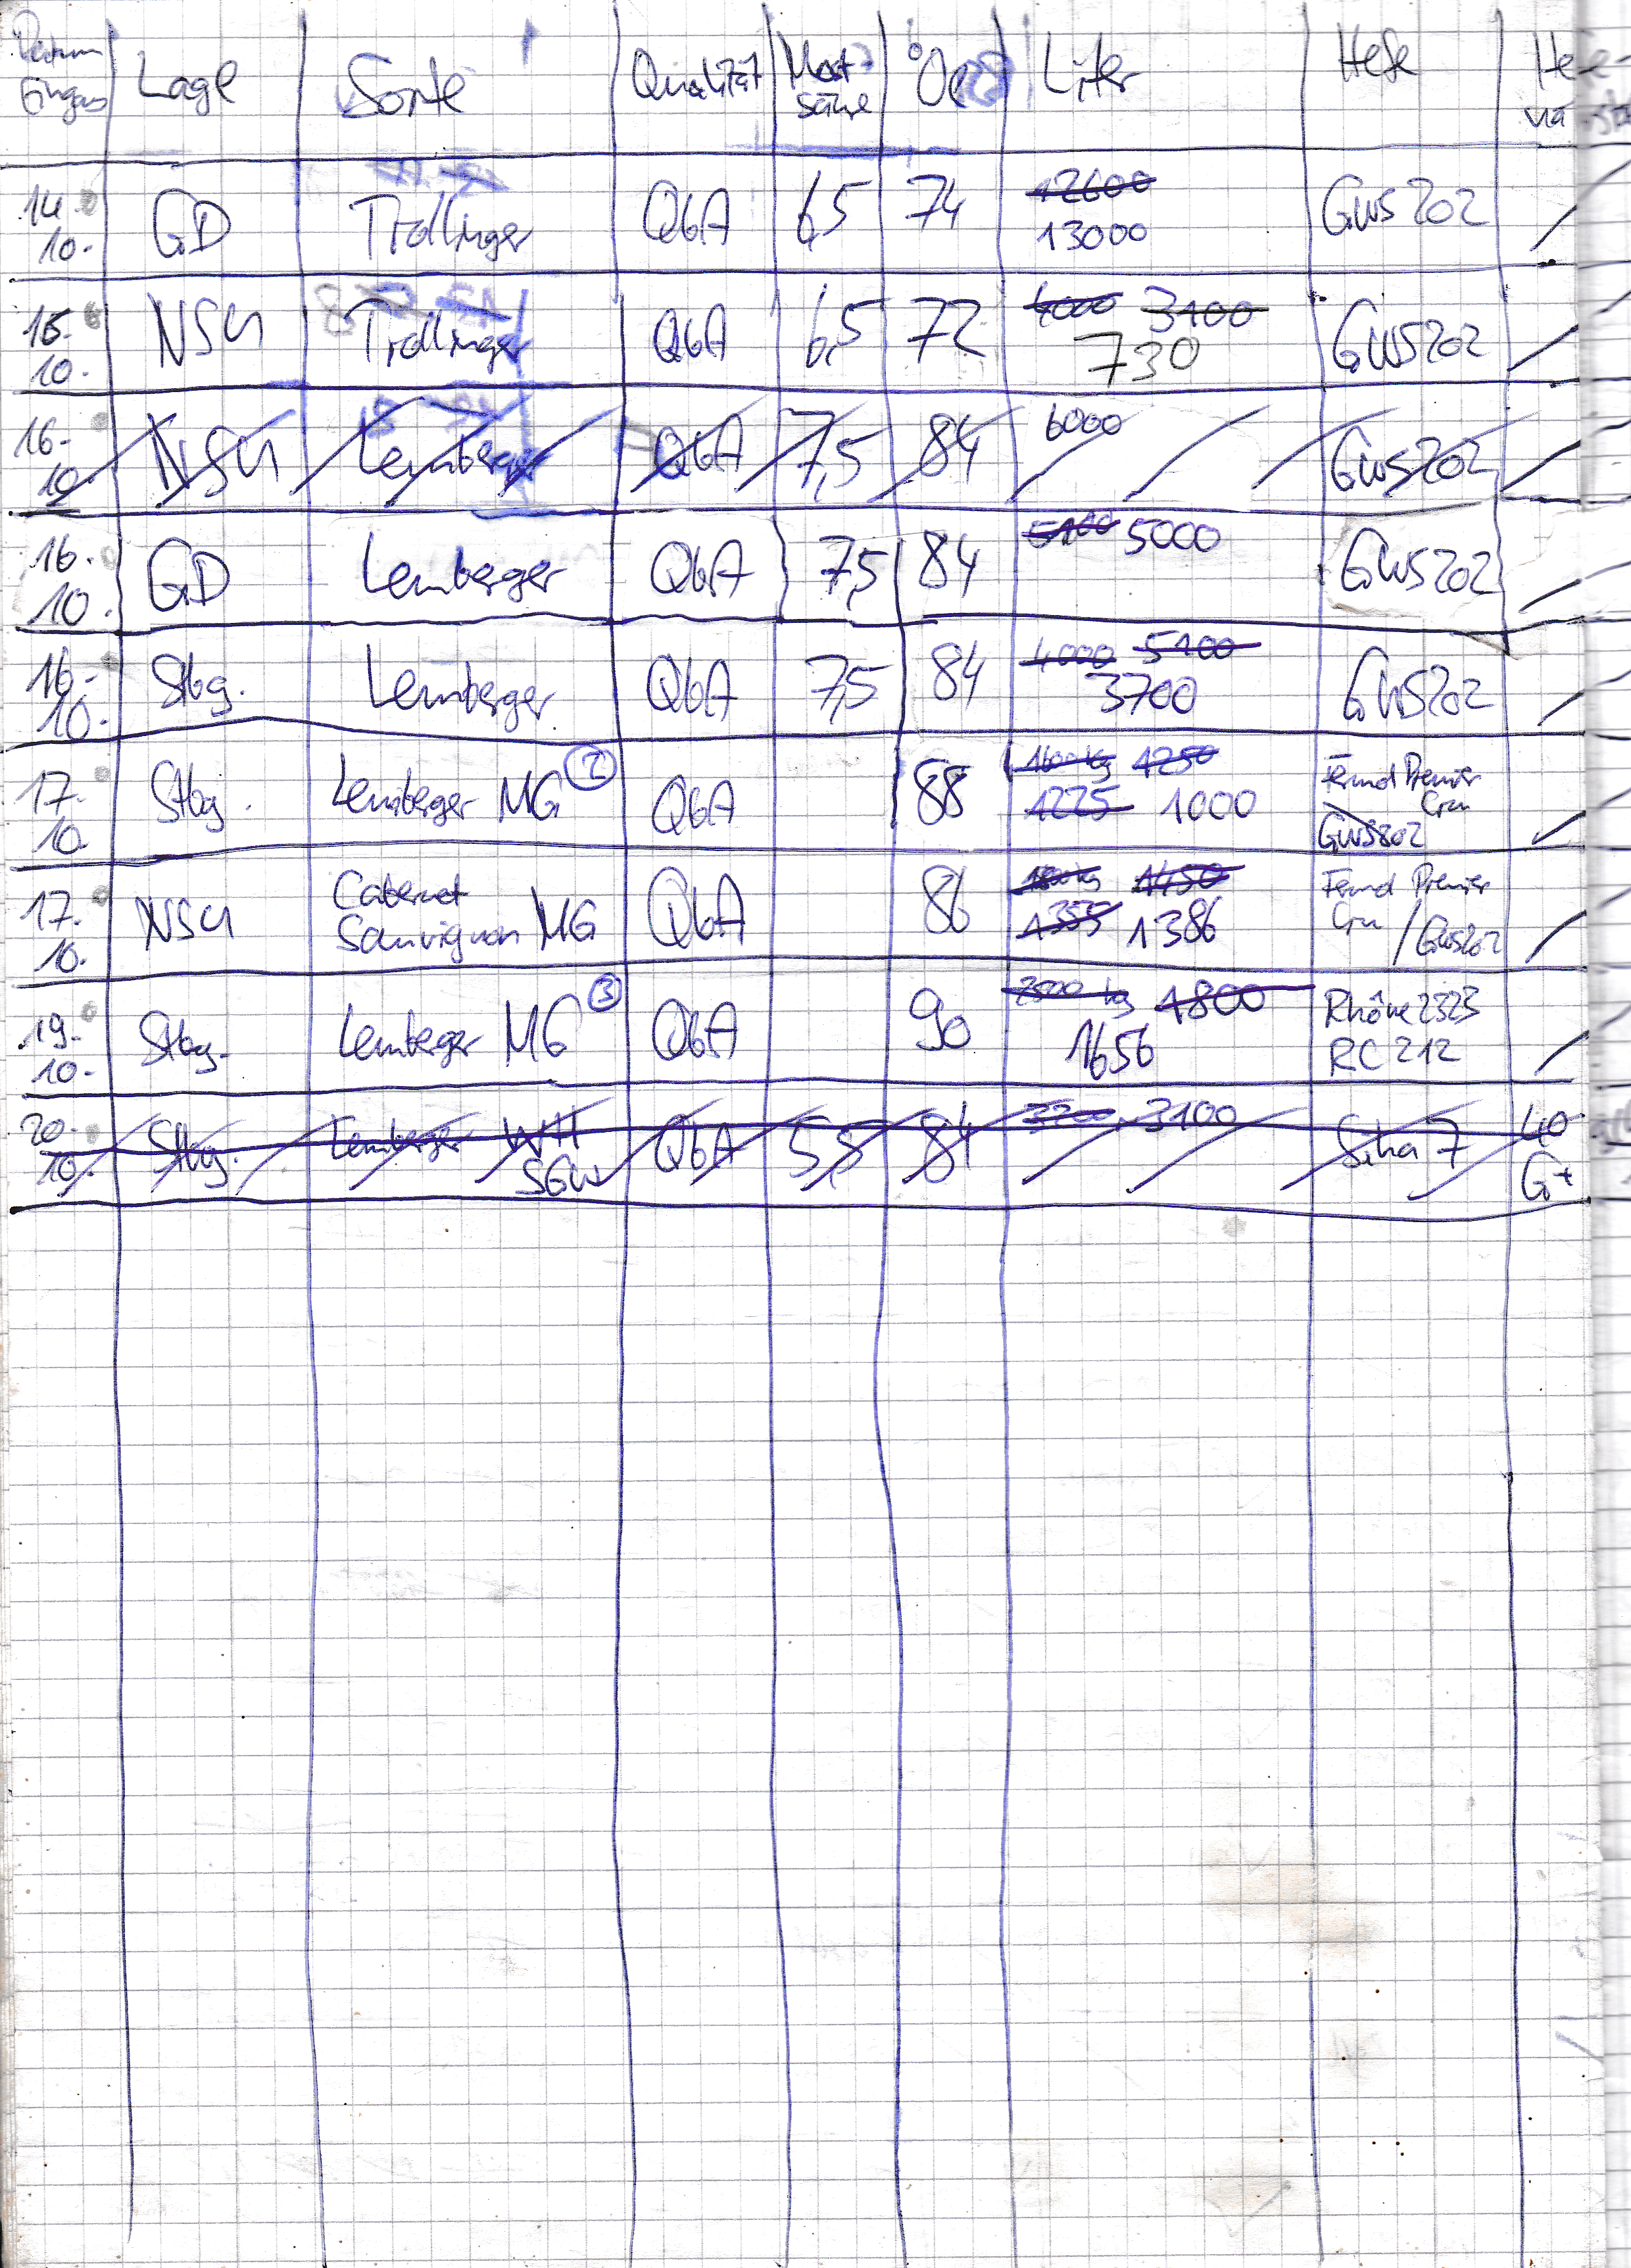 Datum Eingang Lage Sorte Qualität Most-säure °Oe Liter Hefe Hefe-
14.10. GD Trollinger QbA 6,5 74 12600 13000 GWS202 /
15.10. NSH Trollinger QbA 6,5 72 4000 3100 730 GWS202 /
16.10. NSH Lemberger QbA 7,5 84 6000 GWS202 /
16.10. GD Lemberger QbA 7,5 84 5100 5000 GWS202 /
16.10. Stbg. Lemberger QbA 7,5 84 4000 5100 3700 GWS202 /
17.10. Stbg. Lemberger MG ② QbA 88 1600 kg 1250 1225 1000 Fermol Premier Cru GWS202 /
17.10. NSH Cabernet Sauvignon MG QbA 86 1800 kg 1450 1355 1386 Fermol Premier Cru / GWS202 /
19.10. Stbg. Lemberger MG ③ QbA 90 2500 kg 1800 1656 Rhône 2323 RC 212 /
20.10. Stbg. Lemberger WH SGW QbA 5,8 84 3200 3100 Siha 7 40 G+